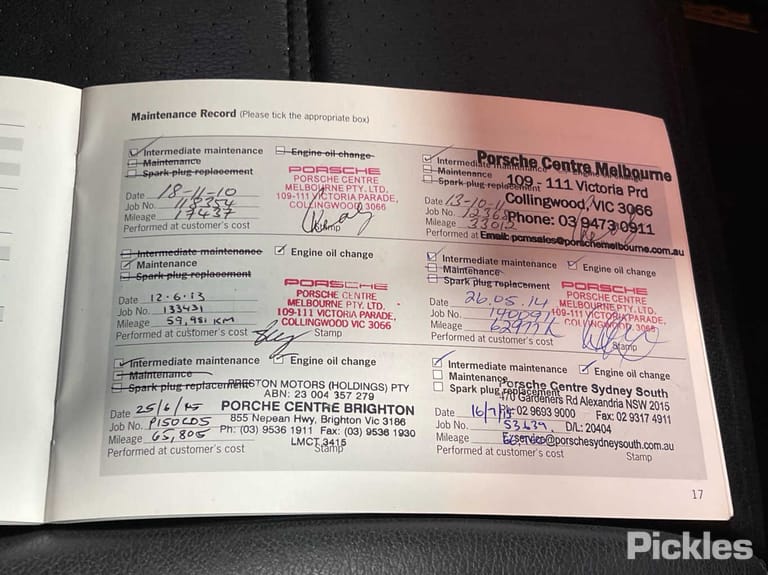 Maintenance Record (Please tick the appropriate box)
Intermediate maintenance Engine oil change
Maintenance
Spark plug replacement
PORSCHE
PORSCHE CENTRE
MELBOURNE PTY. LTD.
109-111 VICTORIA PARADE,
COLLINGWOOD 3066
Date 18-11-10
Job No. 118354
Mileage 17437
Performed at customer's cost Stamp
Intermediate maintenance
Maintenance
Spark plug replacement
Porsche Centre Melbourne
109 - 111 Victoria Prd
Collingwood, VIC 3066
Phone: 03 9473 0911
Email: pcmsales@porschemelbourne.com.au
Date 13-10-11
Job No.
Mileage 33012
Performed at
Intermediate maintenance Engine oil change
Maintenance
Spark plug replacement
PORSCHE
PORSCHE CENTRE
MELBOURNE PTY. LTD.
109-111 VICTORIA PARADE,
COLLINGWOOD VIC 3066
Date 12.6.13
Job No. 133431
Mileage 59,981 KM
Performed at customer's cost Stamp
Intermediate maintenance Engine oil change
Maintenance
Spark plug replacement
PORSCHE
PORSCHE CENTRE
MELBOURNE PTY. LTD.
109-111 VICTORIA PARADE,
COLLINGWOOD VIC 3066
Date 26.05.14
Job No.
Mileage
Performed at customer's cost Stamp
Intermediate maintenance Engine oil change
Maintenance
Spark plug replacement
PRESTON MOTORS (HOLDINGS) PTY
ABN: 23 004 357 279
PORCHE CENTRE BRIGHTON
855 Nepean Hwy, Brighton Vic 3186
Ph: (03) 9536 1911 Fax: (03) 9536 1930
LMCT 3415
Date 25/6/15
Job No.
Mileage 65,805
Performed at customer's cost Stamp
Intermediate maintenance Engine oil change
Maintenance
Spark plug replacement
Porsche Centre Sydney South
Gardeners Rd Alexandria NSW 2015
02 9693 9000 Fax: 02 9317 4911
D/L: 20404
service@porschesydneysouth.com.au
Date
Job No. 53639
Mileage
Performed at customer's cost Stamp
17
Pickles